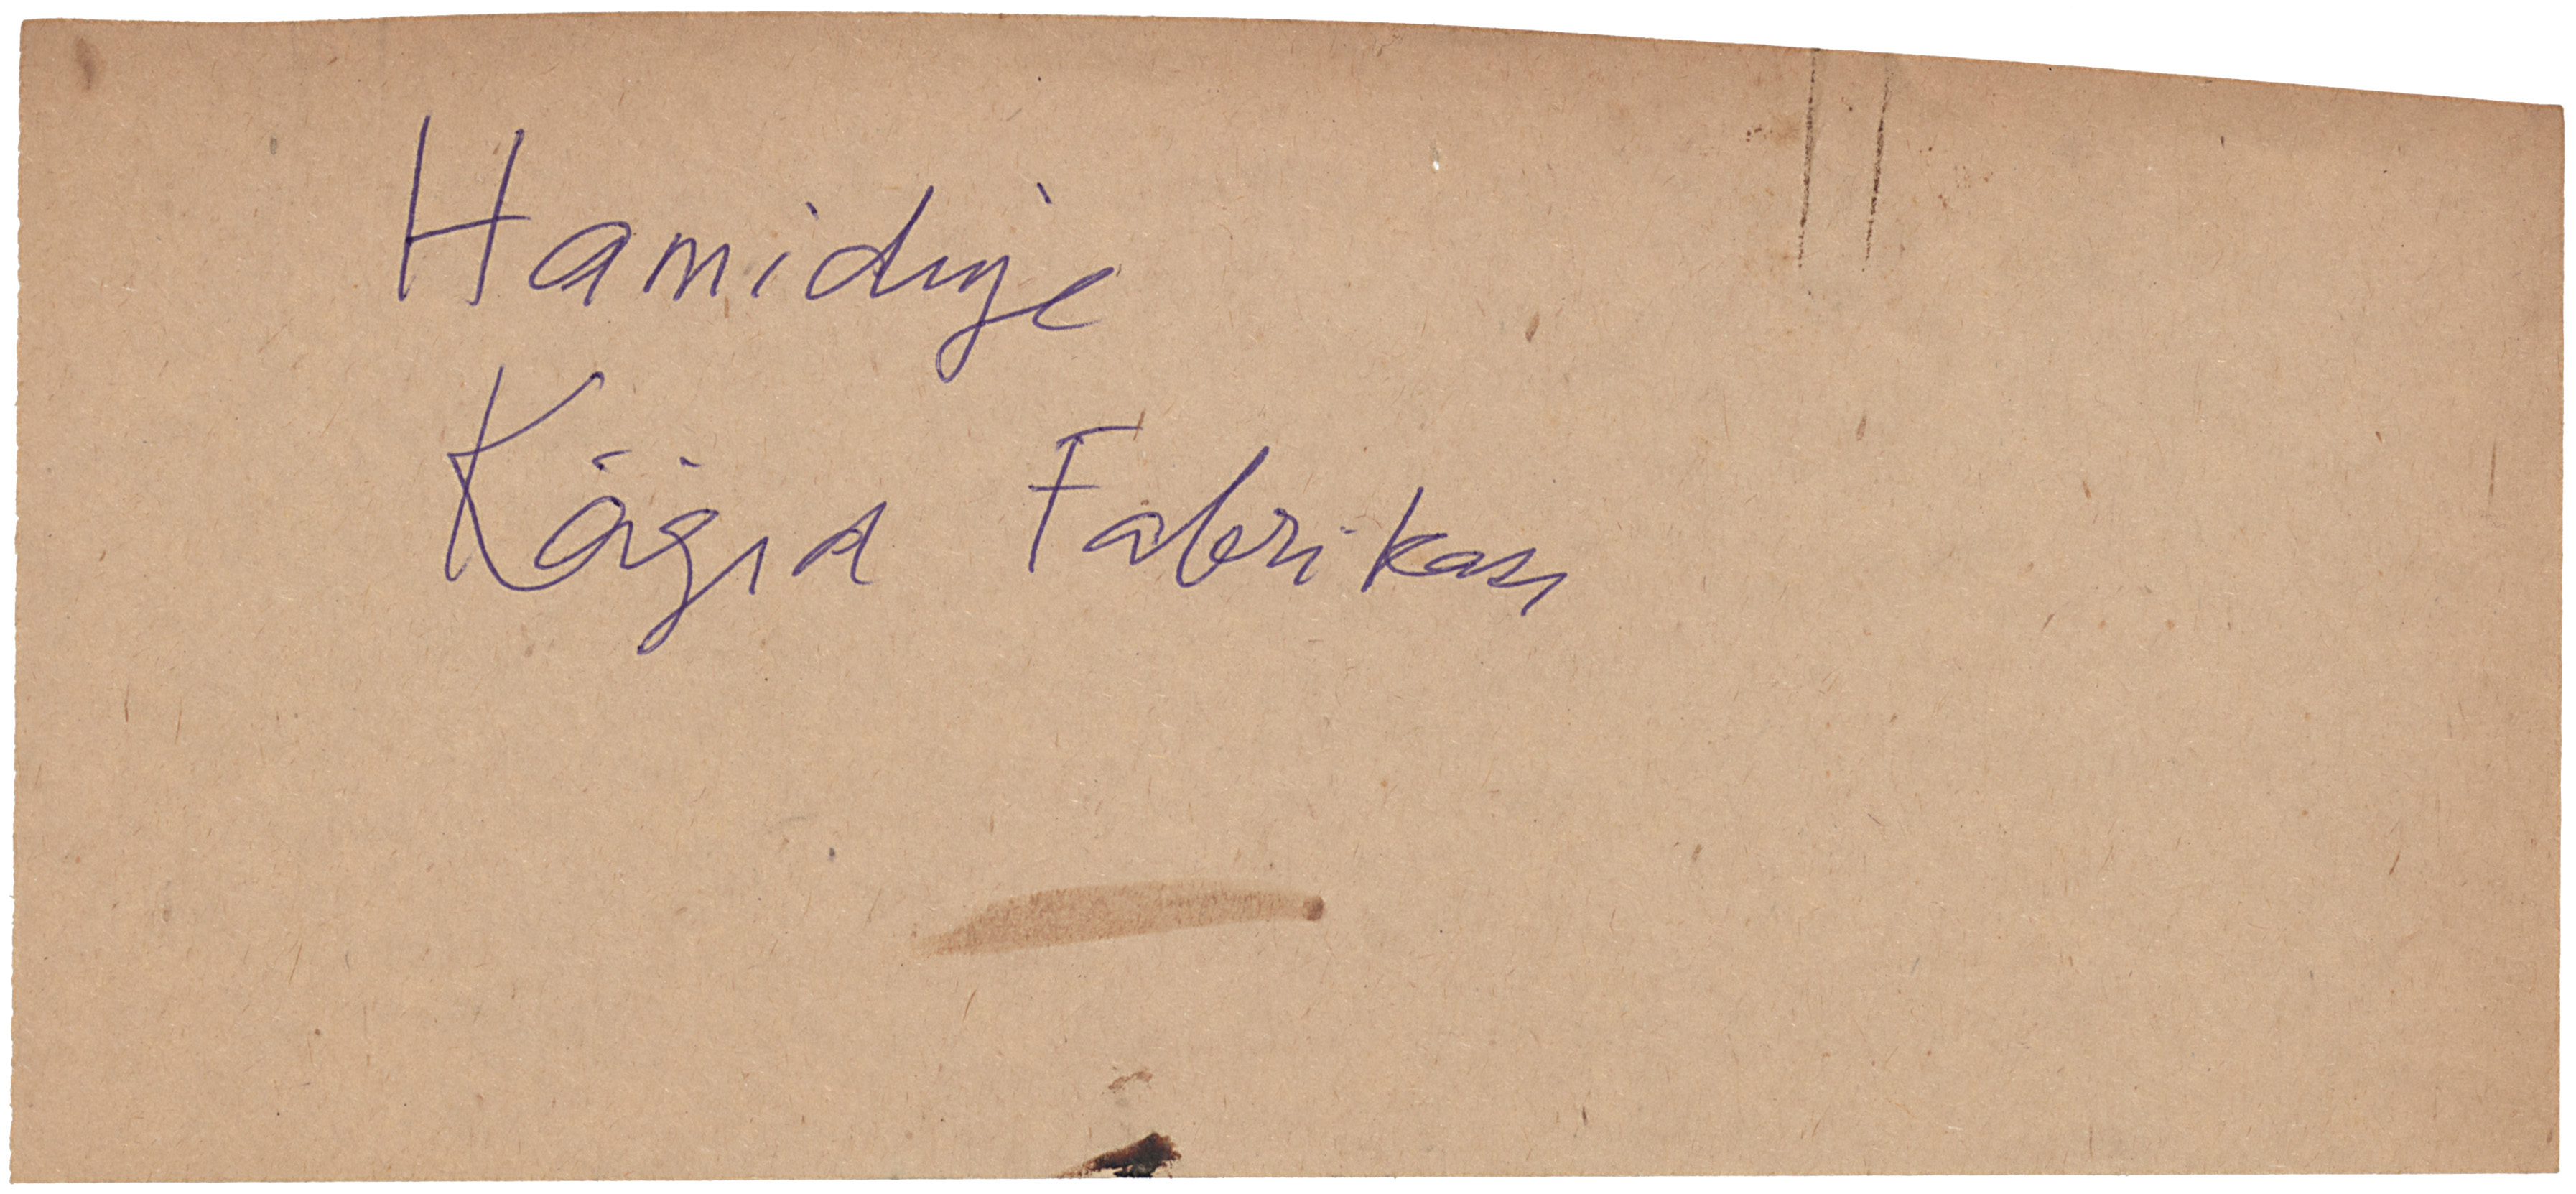 Hamidiye
Kâğıd Fabrikası